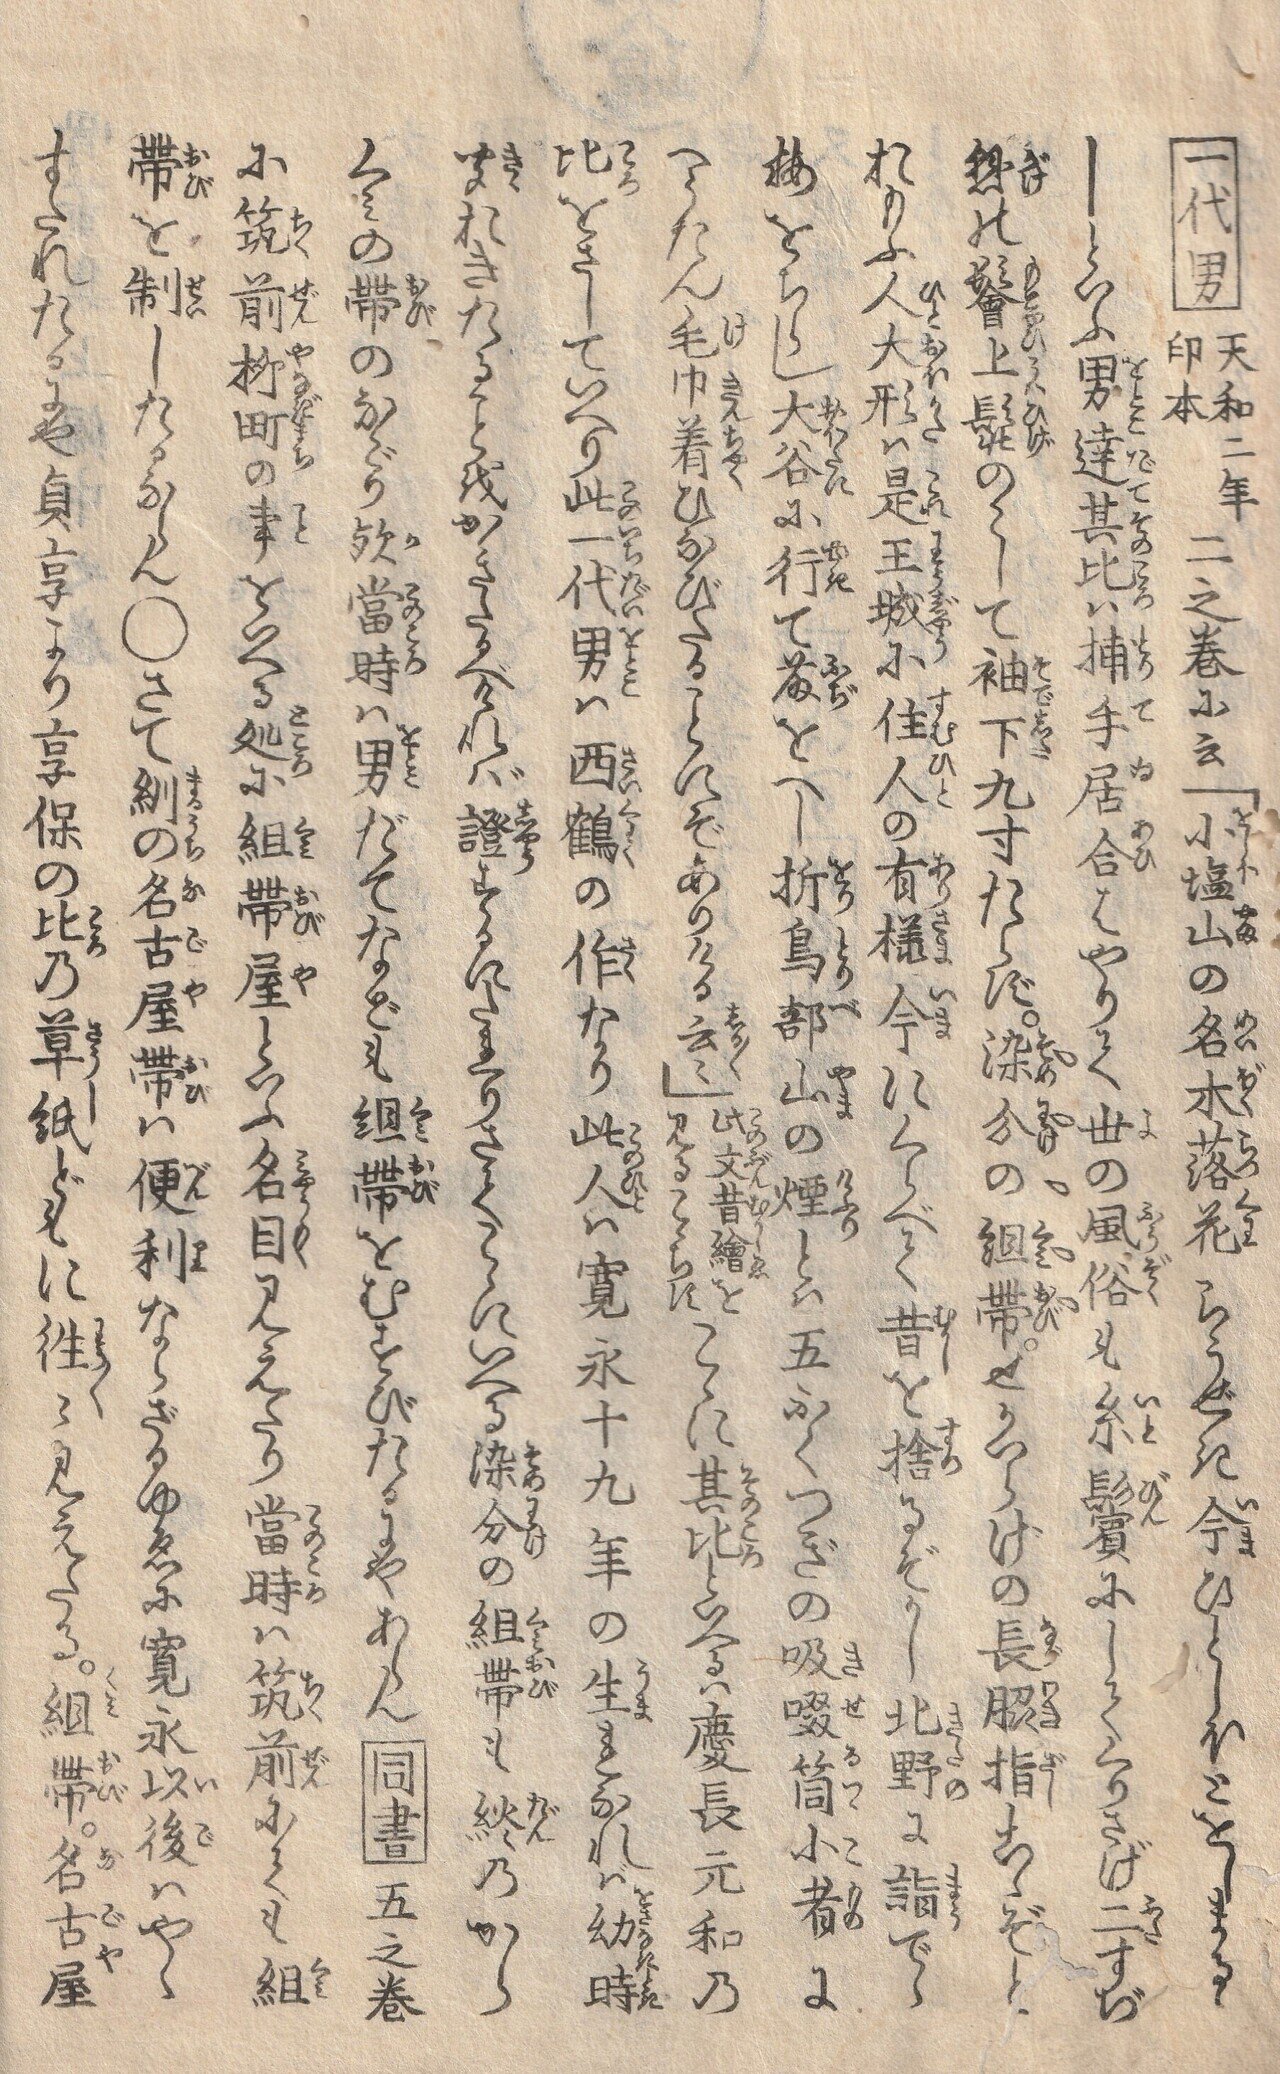 一代男 天和二年印本 二之巻に云「小塩山の名木落花らうぜき今ひとしほとをしまるゝ
しといふ男達其比ハ捕手居合はやりて世の風俗も糸鬢にしてくりさげ二すぢ
懸の鬙上髭のこして袖下九寸たらず。染分の組帯。せかいらけの長脇指
おもふ人大形ハ是王城に住人の有様今にくらべて昔を捨るぞかし北野に詣でゝ
梅をちらし大谷に行て藤をへし折鳥部山の煙とハ五ふくつぎの吸啜筒小者に
へうたん毛巾着ひなびたることにぞありける云々」此文昔繪を見るこゝちすこゝに其比といへるハ慶長元和の
比をさしていへり此一代男ハ西鶴の作なり此人ハ寛永十九年の生まれなれバ幼時
きゝおきたることをかきたるべけれバ證とするにたれりさてこゝにいへる染分の組帯も緂のから
くみの帯のなごり歟當時ハ男だてなども組帯をむすびたるにやあらん 同書 五之巻
に筑前柳町の事をいへる処に組帯屋といふ名目見えたり當時ハ筑前にても組
帯を制したるならん○さて紃の名古屋帯ハ便利ならざるゆゑに寛永以後ハやゝ
すたれたるにや貞享より享保の比の草紙どもに往々見えたる。組帯。名古屋